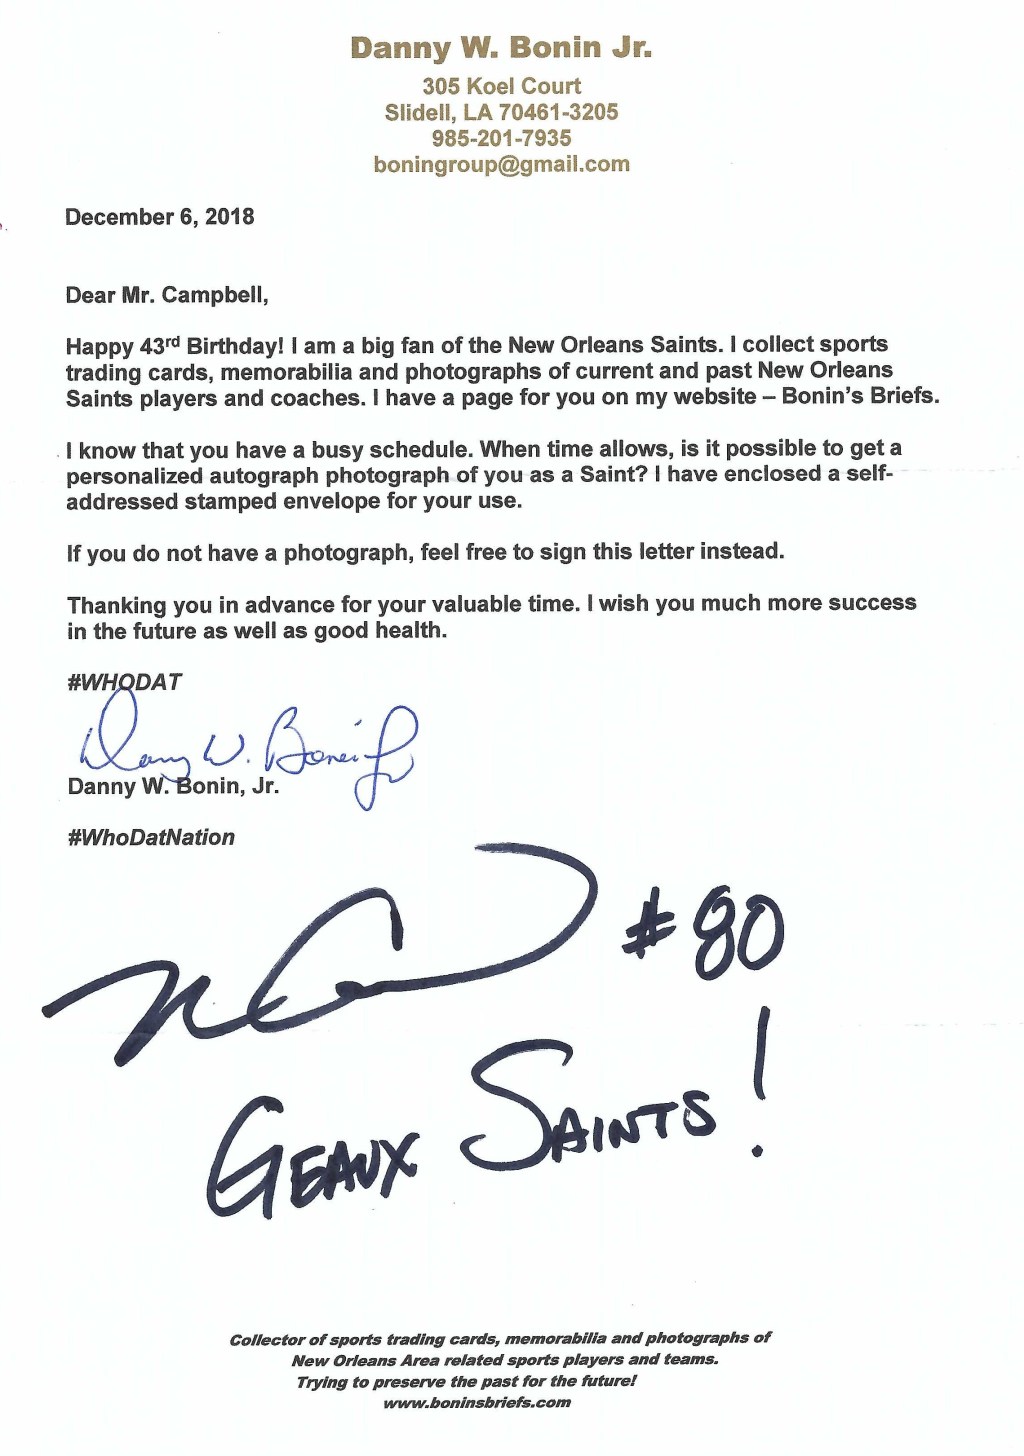 Danny W. Bonin Jr.
305 Koel Court
Slidell, LA 70461-3205
985-201-7935
boningroup@gmail.com
December 6, 2018
Dear Mr. Campbell,
Happy 43rd Birthday! I am a big fan of the New Orleans Saints. I collect sports
trading cards, memorabilia and photographs of current and past New Orleans
Saints players and coaches. I have a page for you on my website – Bonin's Briefs.
I know that you have a busy schedule. When time allows, is it possible to get a
personalized autograph photograph of you as a Saint? I have enclosed a self-
addressed stamped envelope for your use.
If you do not have a photograph, feel free to sign this letter instead.
Thanking you in advance for your valuable time. I wish you much more success
in the future as well as good health.
#WHODAT
Danny W. Bonin Jr
Danny W. Bonin, Jr.
#WhoDatNation
#80
GEAUX SAINTS!
Collector of sports trading cards, memorabilia and photographs of
New Orleans Area related sports players and teams.
Trying to preserve the past for the future!
www.boninsbriefs.com